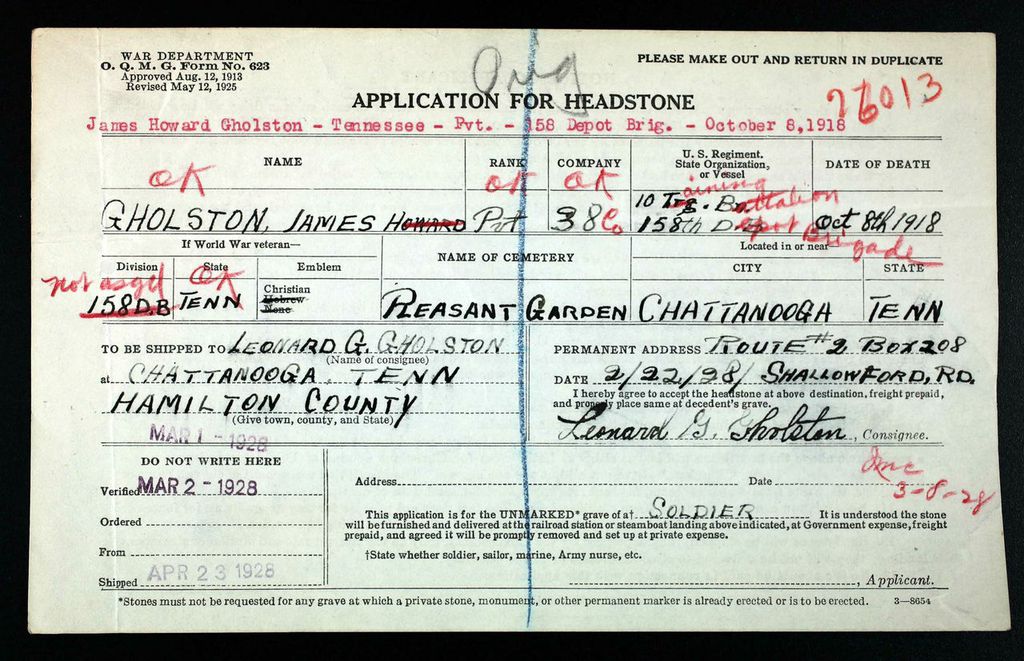 WAR DEPARTMENT
O. Q. M. G. Form No. 623
Approved Aug. 12, 1913
Revised May 12, 1925
Orig
PLEASE MAKE OUT AND RETURN IN DUPLICATE
APPLICATION FOR HEADSTONE
26013
James Howard Gholston - Tennessee - Pvt. - 158 Depot Brig. - October 8,1918
NAME
RANK
COMPANY
U. S. Regiment,
State Organization,
or Vessel
DATE OF DEATH
OK
OK
OK
GHOLSTON, JAMES HOWARD
Pvt
38 Co
10 Training Battalion
158th Depot Brigade
Oct 8th 1918
If World War veteran—
NAME OF CEMETERY
Located in or near—
Division
State
Emblem
CITY
STATE
not asgd
OK
158 D.B
TENN
Christian
Hebrew
None
PLEASANT GARDEN
CHATTANOOGA
TENN
TO BE SHIPPED TO LEONARD G. GHOLSTON
(Name of consignee)
at CHATTANOOGA, TENN
HAMILTON COUNTY
(Give town, county, and State)
MAR 1 - 1928
PERMANENT ADDRESS ROUTE # 2 BOX 208
DATE 2/22/28/ SHALLOWFORD, RD.
I hereby agree to accept the headstone at above destination, freight prepaid,
and properly place same at decedent's grave.
Leonard G. Gholston, Consignee.
DO NOT WRITE HERE
Verified MAR 2 - 1928
Ordered
From
Shipped APR 23 1928
Address
Date
3-8-28
This application is for the UNMARKED* grave of a† SOLDIER It is understood the stone
will be furnished and delivered at the railroad station or steamboat landing above indicated, at Government expense, freight
prepaid, and agreed it will be promptly removed and set up at private expense.
†State whether soldier, sailor, marine, Army nurse, etc.
, Applicant.
*Stones must not be requested for any grave at which a private stone, monument, or other permanent marker is already erected or is to be erected.
3—8654